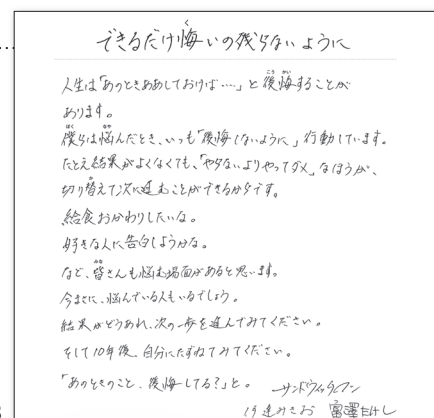 できるだけ悔いの残らないように
人生は「あのときああしておけば‥‥」と後悔することが
あります。
僕らは悩んだとき、いつも「後悔しないように」行動しています。
たとえ結果がよくなくても、「やらないよりやってダメ」なほうが、
切り替えて次に進むことができるからです。
給食おかわりしたいな。
好きな人に告白しようかな。
など、皆さんも悩む場面があると思います。
今まさに、悩んでいる人もいるでしょう。
結果がどうあれ、次の一歩を進んでみてください。
そして10年後、自分にたずねてみてください。
「あのときのこと、後悔してる?」と。
サンドウィッチマン
伊達みきお 富澤たけし